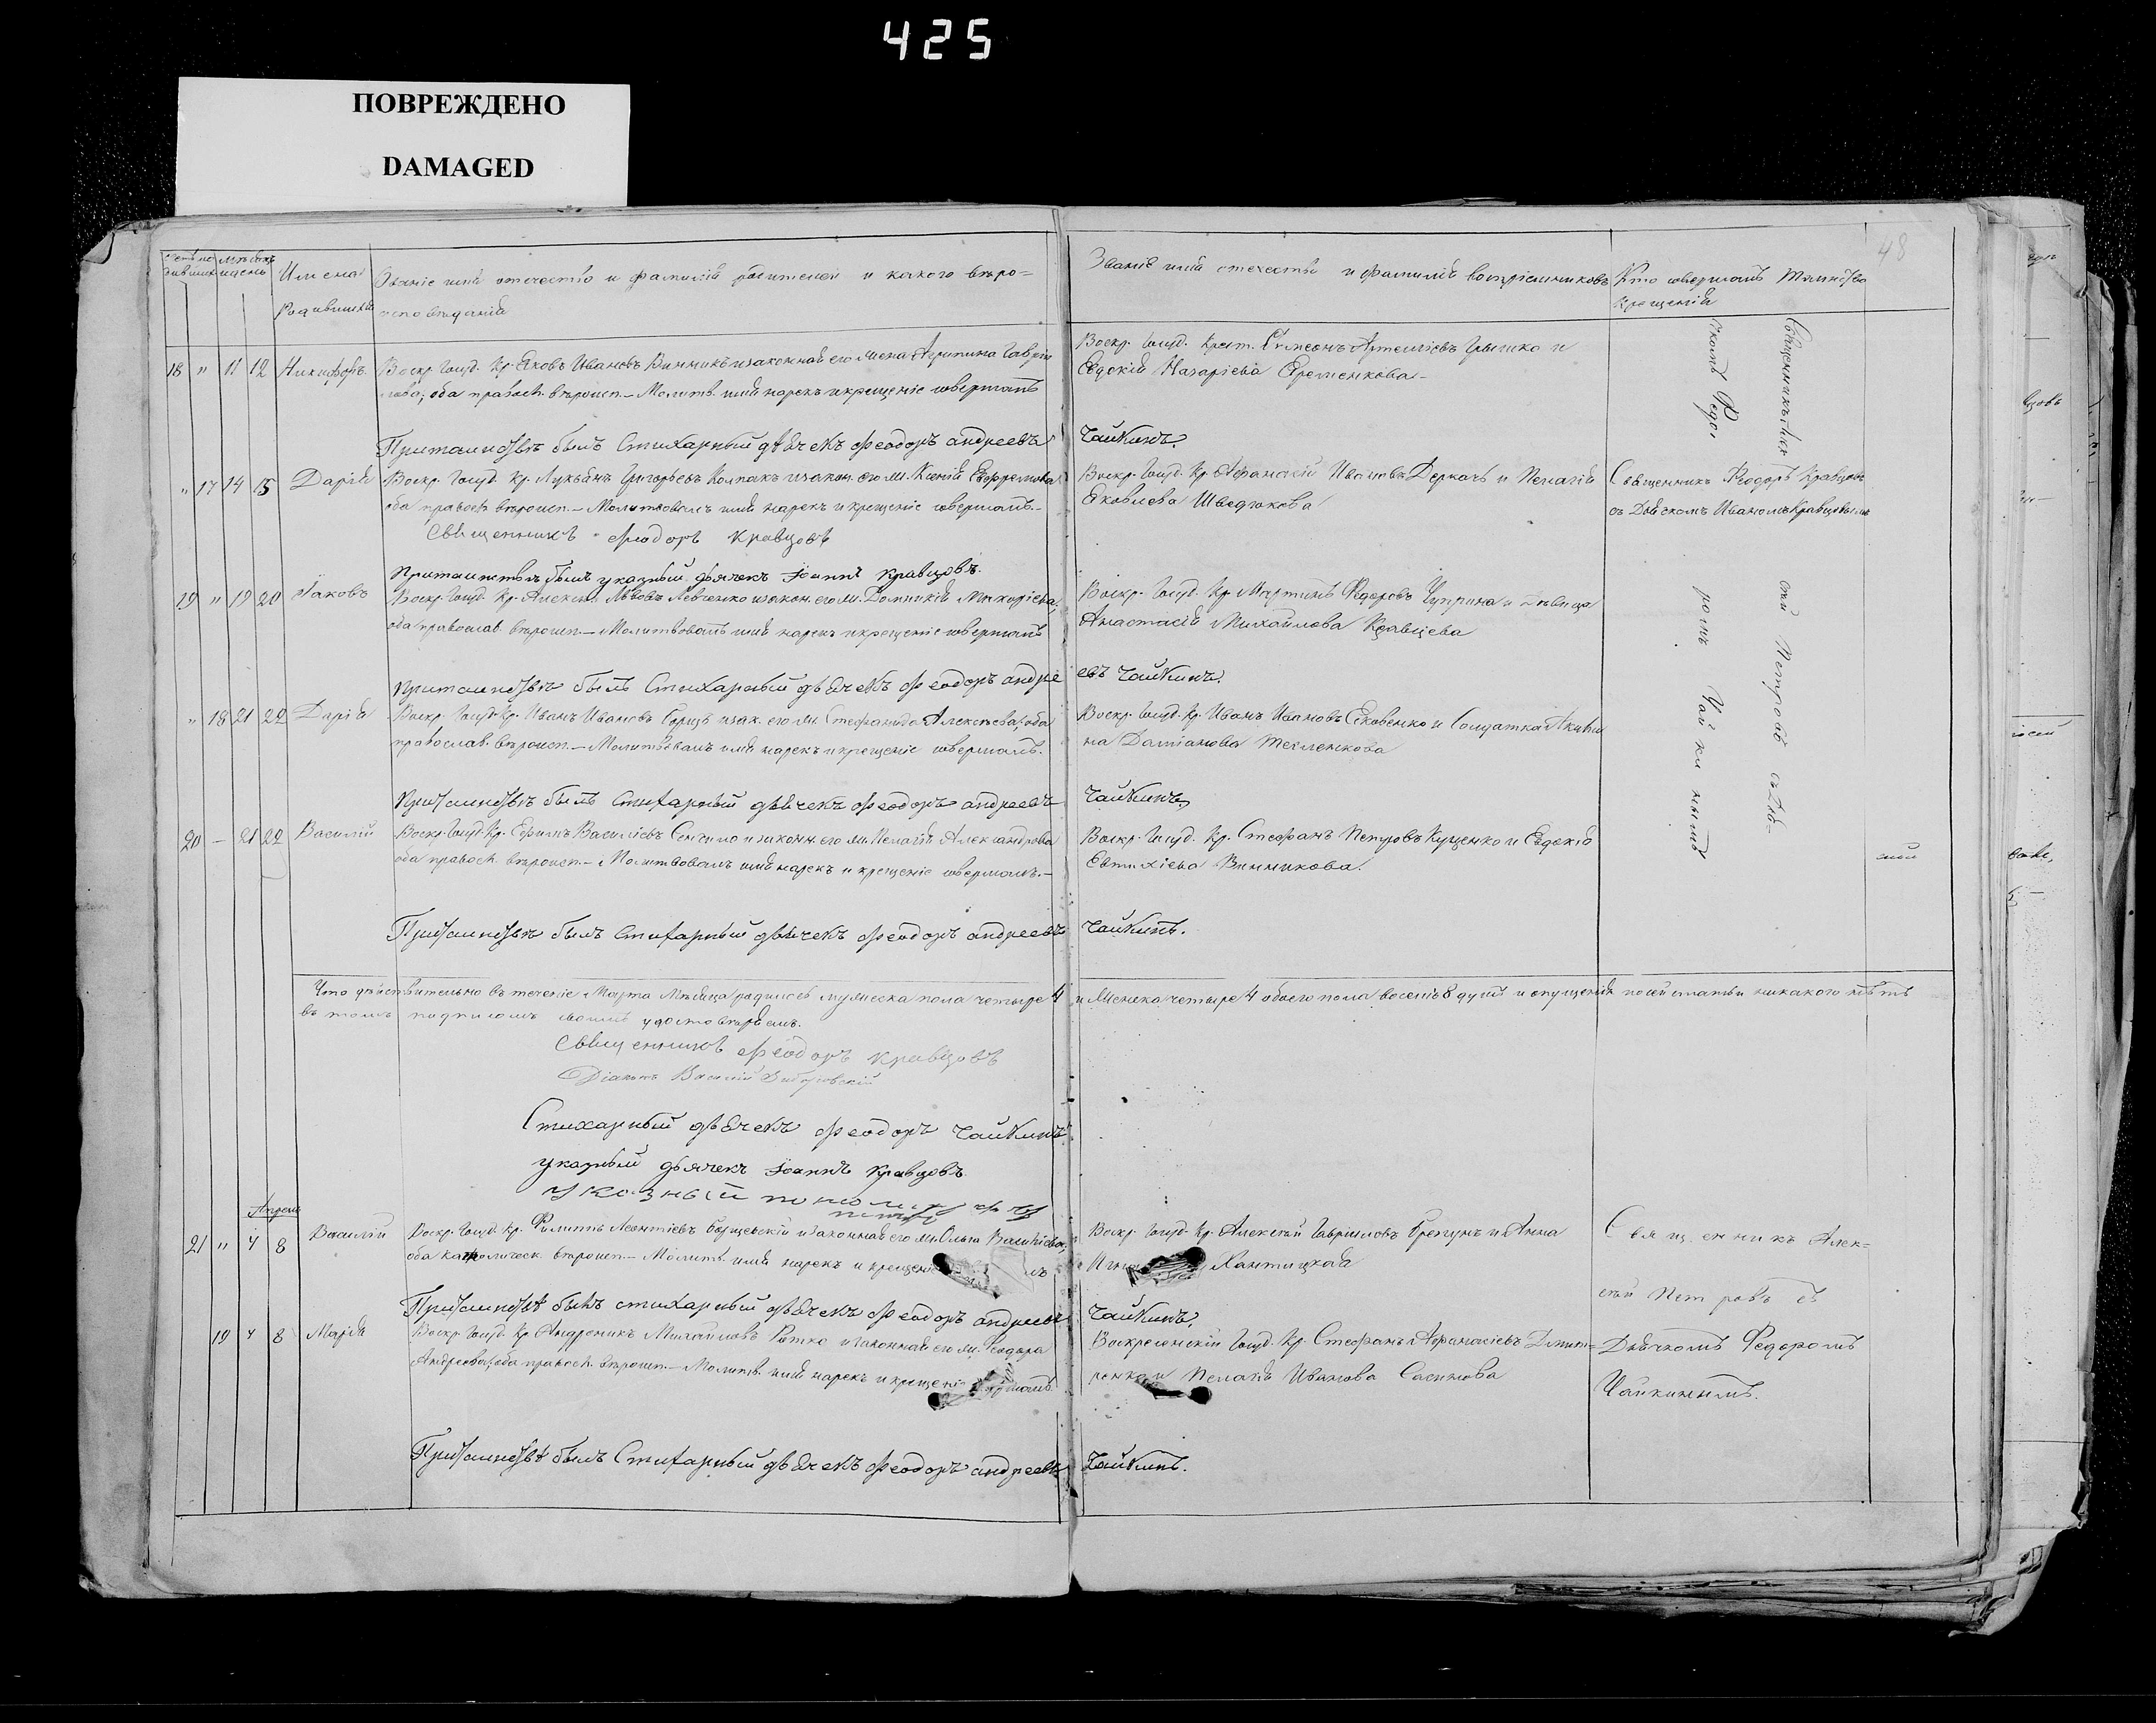 425
ПОВРЕЖДЕНО
DAMAGED
48
Имена
Родившихся
Званіе имя отечество и фамилія родителей и какого вѣро=
исповѣданія
Званіе имя отечество и фамилія воспріемниковъ
Кто совершалъ Таинство
Крещенія
18 " 11 12 Никифоръ
Воскр. Госуд. Кр. Яковъ Ивановъ Винникъ и законная его жена Агрипина Гаврiи
лова, оба правосл. вѣроисп. – Молитв. имя нарекъ и крещеніе совершалъ
Воскр. Госуд. Крест. Симеонъ Артеміевъ Грышко и
Евдокія Назаріева Еременкова –
Притаинствѣ былъ Стихарный дьячекъ Феодоръ андреевъ
Чайкинъ.
Священникъ Алек
сѣй Петровъ съ Дья-
чкомъ Федо
ромъ Чайкинымъ
" 17 14 15 Дарія
Воскр. Госуд. Кр. Лукьянъ Григорьевъ Колпакъ и закон. его ж. Ксенія Евфремова
оба правосл. вѣроисп. – Молитвовалъ имя нарекъ и крещеніе совершалъ. –
Священникъ Феодоръ Кравцовъ
Воскр. Госуд. Кр. Афанасій Ивановъ Деркачь и Пелагія
Яковлева Шведюкова
Священникъ Феодоръ Кравцовъ
съ Дьячкомъ Иваномъ Кравцовымъ
Притаинствѣ былъ указный дьячекъ Іоаннъ Кравцовъ.
19 " 19 20 Іаковъ
Воскр. Госуд. Кр. Алексѣй Львовъ Левченко и закон. его ж. Домникія Макаріева,
оба православ. вѣроисп. – Молитвовалъ имя нарекъ и крещеніе совершалъ
Воскр. Госуд. Кр. Мартинъ Федоровъ Чуприна и дѣвица
Анастасія Михайлова Кравцева
Притаинствѣ былъ Стихарный дьячекъ Феодоръ андре
евъ Чайкинъ.
" 18 21 22 Дарія
Воскр. Госуд. Кр. Иванъ Ивановъ и зак. его ж. Стефанида Алексѣева, оба
православ. вѣроисп. – Молитвовалъ имя нарекъ и крещеніе совершалъ.
Воскр. Госуд. Кр. Иванъ Ивановъ Яковенко и Солдатка Акили
на Даміанова
Притаинствѣ былъ Стихарный дьячекъ Феодоръ андреевъ
Чайкинъ.
20 – 21 22 Василій
Воскр. Госуд. Кр. Ефимъ Василіевъ и законн. его ж. Пелагія Александрова
оба правосл. вѣроисп. – Молитвовалъ имя нарекъ и крещеніе совершалъ. –
Воскр. Госуд. Кр. Стефанъ Петровъ Куценко и Евдокія
Евтихіева Винникова.
Притаинствѣ былъ Стихарный дьячекъ Феодоръ андреевъ
Чайкинъ.
Что дѣйствительно въ теченіе Марта Мѣсяца родилось мужеска пола четыре 4 и Женска четыре 4 обоего пола восемь 8 душъ и опущенія по сей статьи никакого нѣтъ
въ томъ подписомъ своимъ удостовѣряемъ.
Священникъ Феодоръ Кравцовъ
Діаконъ Василій
Стихарный дьячекъ Феодоръ Чайкинъ
указный дьячекъ Іоаннъ Кравцовъ
Указный
Апрель
21 " 4 8 Василій
Воскр. Госуд. Кр. Филиппъ Леонтіевъ и законная его ж. Ольга
оба католическ. вѣроисп. – Молитв. имя нарекъ и крещеніе
Воскр. Госуд. Кр. Алексѣй Гавриловъ и Анна
Священникъ Алек=
сѣй Петровъ съ
Притаинствѣ былъ стихарный дьячекъ Феодоръ андреевъ
Чайкинъ.
19 4 8 Марія
Воскр. Госуд. Кр. Андроникъ Михайловъ и законная его ж. Феодора
Андреева, оба правосл. вѣроисп. – Молитв. имя нарекъ и крещеніе
Воскресенскій Госуд. Кр. Стефанъ Афанасіевъ
и Пелагія Иванова
Дьячкомъ Федоромъ
Чайкинымъ.
Притаинствѣ былъ Стихарный дьячекъ Феодоръ андреевъ
Чайкинъ.